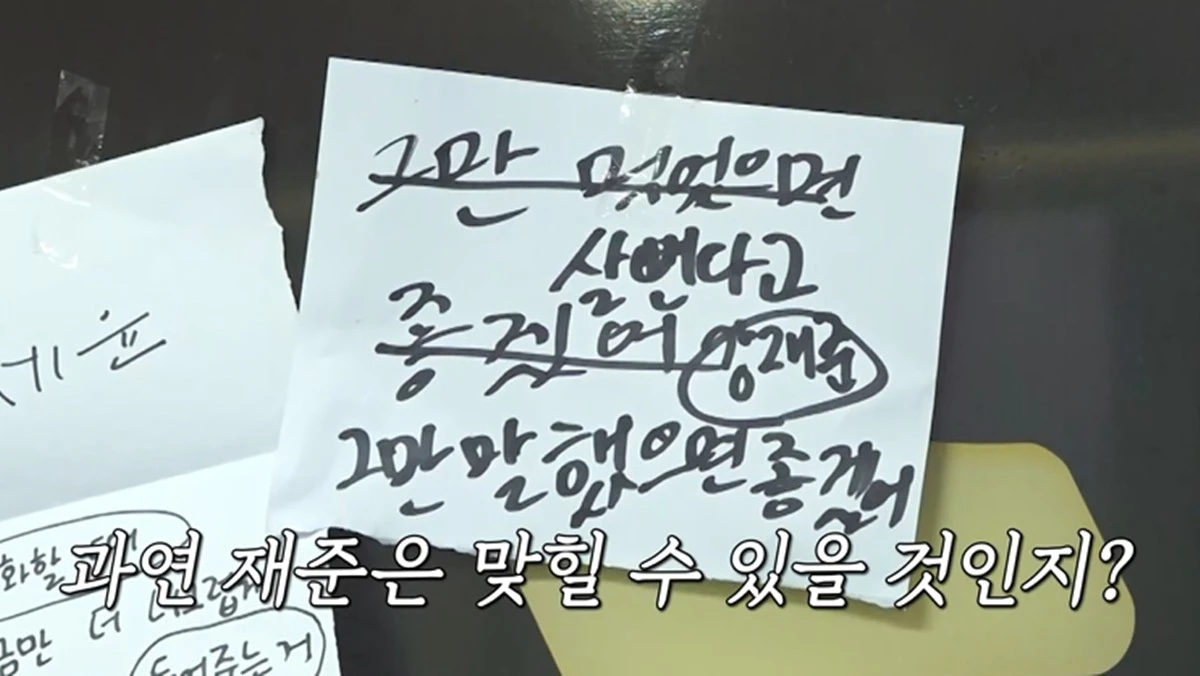 그만 먹었으면
살뺀다고
좋겠어 양재준
그만 말했으면 좋겠어
세윤
화할 때
더 너그럽게
금만
들어주는 거
과연 재준은 맞힐 수 있을 것인지?